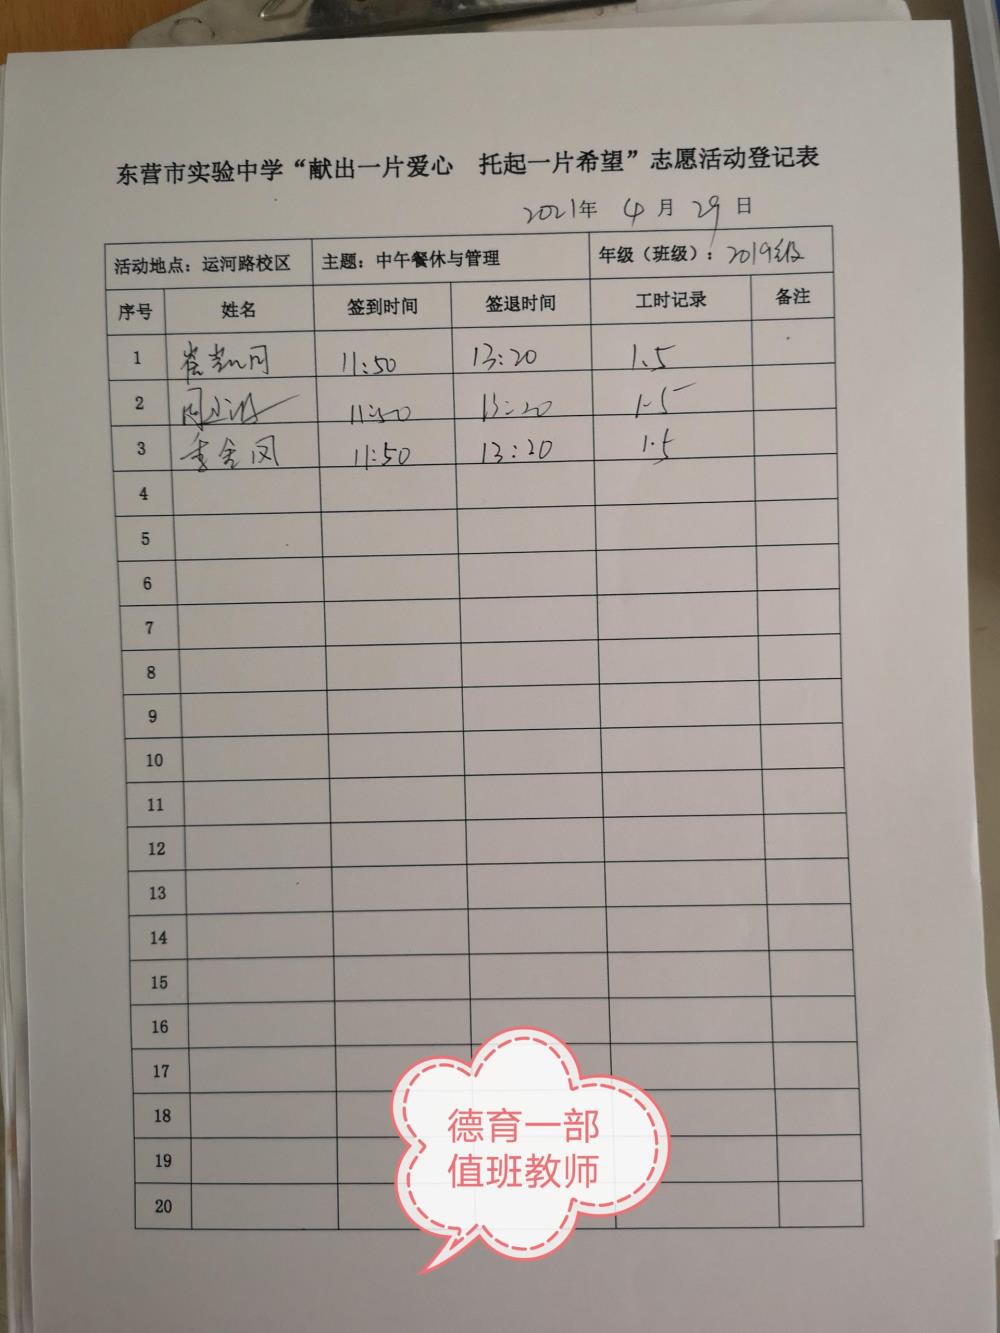 东营市实验中学“献出一片爱心 托起一片希望”志愿活动登记表
2021年 4月 29日
活动地点：运河路校区 主题：中午餐休与管理 年级（班级）：2019级
序号 姓名 签到时间 签退时间 工时记录 备注
1 11:50 13:20 1.5
2 11:50 13:20 1.5
3 季金凤 11:50 13:20 1.5
4
5
6
7
8
9
10
11
12
13
14
15
16
17
18
19
20
德育一部
值班教师